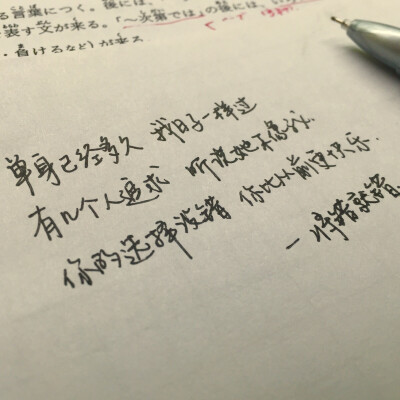 る言葉につく。後には、
を表す文が来る。「～次第では」の後には、い
・負けるなど) が来る
单身已经多久 我日子一样过
有几个人追求 听说她不
你的选择没错 你比从前更快乐.
一将错就错